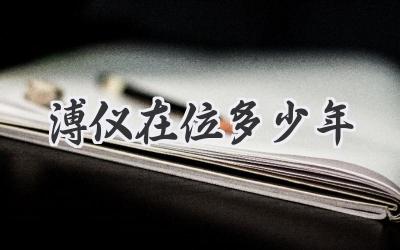 溥仪在位多少年